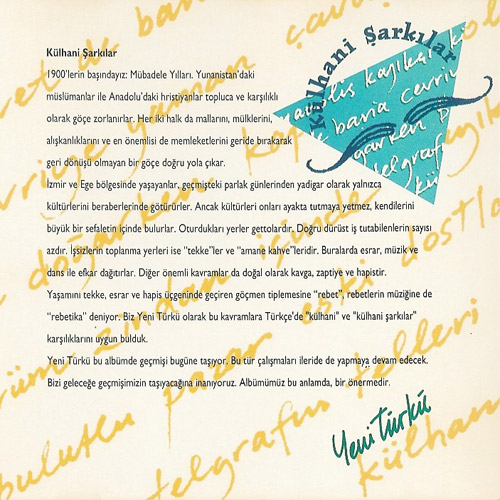 Külhani Şarkılar
Külhani Şarkılar
1900'lerin başındayız: Mübadele Yılları. Yunanistan'daki
müslümanlar ile Anadolu'daki hristiyanlar topluca ve karşılıklı
olarak göçe zorlanırlar. Her iki halk da mallarını, mülklerini,
alışkanlıklarını ve en önemlisi de memleketlerini geride bırakarak
geri dönüşü olmayan bir göçe doğru yola çıkar.
İzmir ve Ege bölgesinde yaşayanlar, geçmişteki parlak günlerinden yadigar olarak yalnızca
kültürlerini beraberlerinde götürürler. Ancak kültürleri onları ayakta tutmaya yetmez, kendilerini
büyük bir sefaletin içinde bulurlar. Oturdukları yerler gettolardır. Doğru dürüst iş tutabilenlerin sayısı
azdır. İşsizlerin toplanma yerleri ise "tekke"ler ve "amane kahve"leridir. Buralarda esrar, müzik ve
dans ile efkar dağıtırlar. Diğer önemli kavramlar da doğal olarak kavga, zaptiye ve hapistir.
Yaşamını tekke, esrar ve hapis üçgeninde geçiren göçmen tiplemesine "rebet", rebetlerin müziğine de
"rebetika" deniyor. Biz Yeni Türkü olarak bu kavramlara Türkçe'de "külhani" ve "külhani şarkılar"
karşılıklarını uygun bulduk.
Yeni Türkü bu albümde geçmişi bugüne taşıyor. Bu tür çalışmaları ileride de yapmaya devam edecek.
Bizi geleceğe geçmişimizin taşıyacağına inanıyoruz. Albümümüz bu anlamda, bir önermedir.
Yeni Türkü
bulutlu
telgrafın telleri
külhan